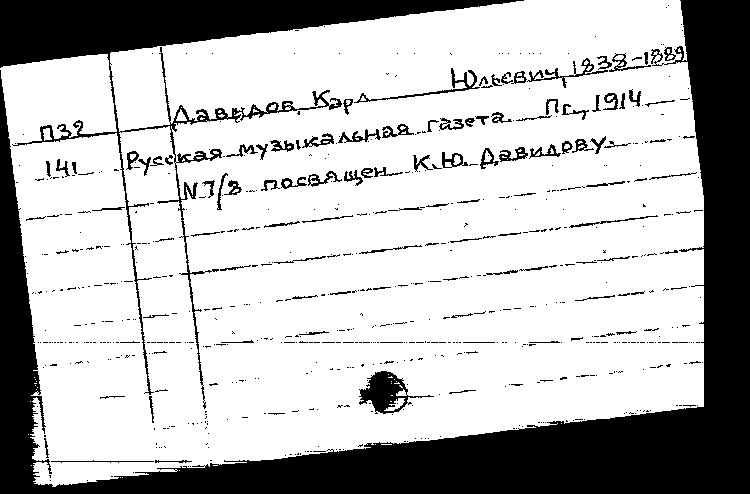 Давыдов, Карл Юльевич, 1838-1889
П32
141 Русская музыкальная газета. Пг., 1914
N 7/8 посвящен К.Ю. Давидову.